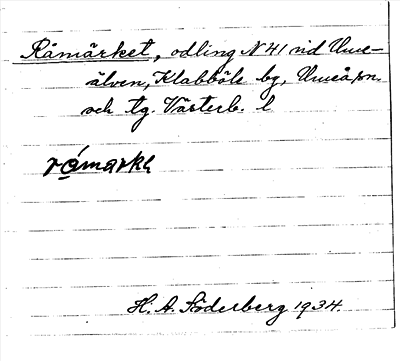 Råmärket, odling N 41 vid Ume-
älven, Klabböle by, Umeå sn.
och tg. Västerb. l
råmarkh
H. A. Söderberg 1934.